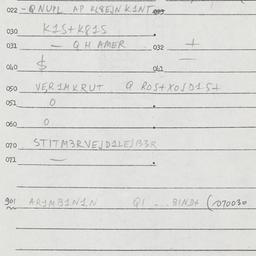 022 - QNUPL AP KL8EJN K1NT
030 K1S+K81S
031 — QH AMER 032 +
040 $ 041 —
050 VER1MKRUT Q ROS+XOJD1S+
051 0
060 0
070 STITM3RVEJD1LEJB3R
071 —
901 AR1MB1N1N Q1 ... 81ND+ (1070030